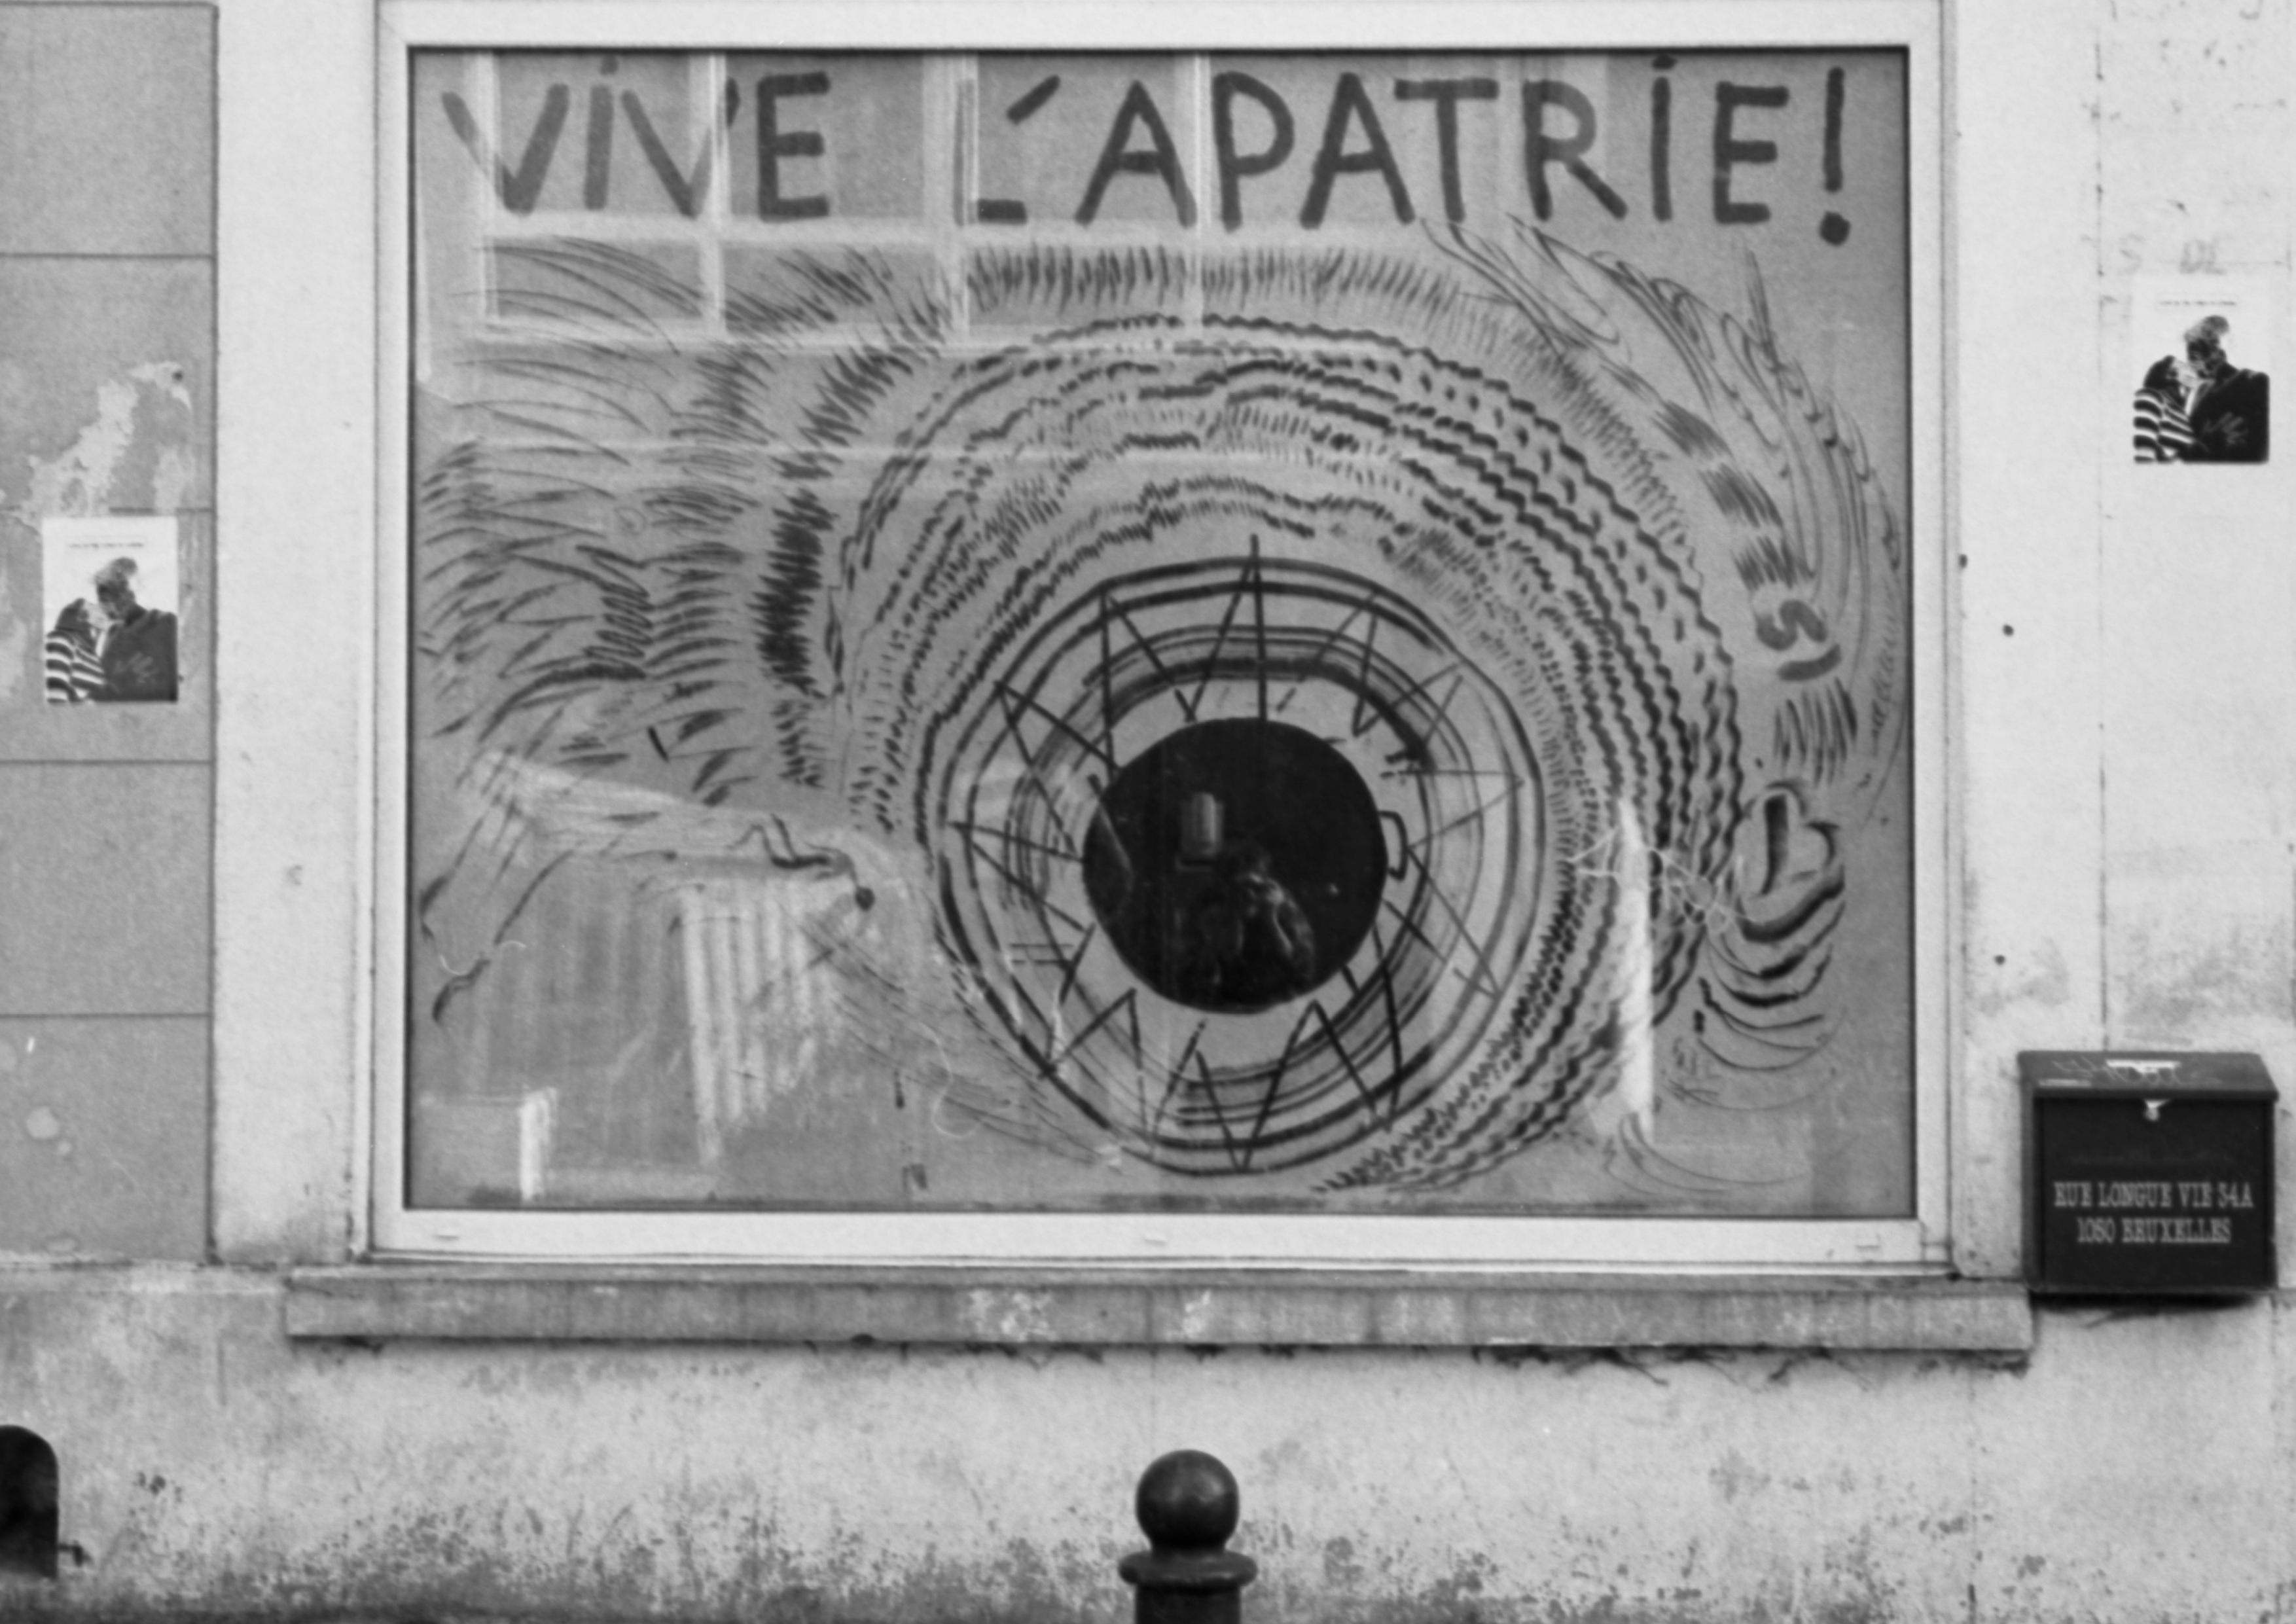 VIVE L'APATRIE!
S DE
RUE LONGUE VIE 34A
1050 BRUXELLES